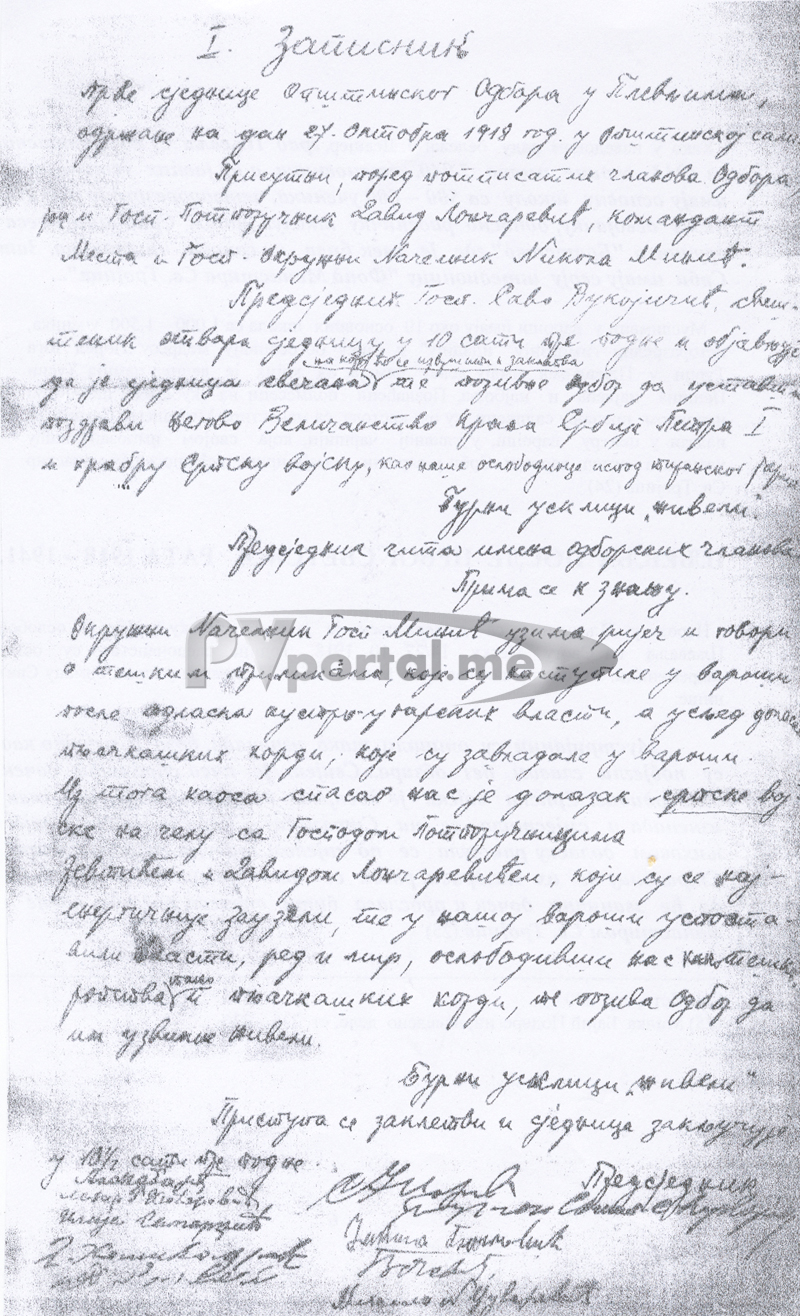 I. Записник
прве сједнице Општинског Одбора у Пљевљима,
одржане на дан 27. Октобра 1918 год. у општинској сали
Присутни, поред потписатих чланова Одбора
још и Госп. Потпоручник Давид Лончаревић, командант
Места и Госп. Окружни Начелник Никола Минић.
Предсједник Госп. Саво Вукојичић, свеш-
теник отвара сједницу у 10 сати пре подне и објављује
на којој ће се извршити заклетва
да је сједница свечана те позивље одбор да устави
поздрави Његово Величанство Краља Србије Петра I
и храбру Српску војску, као наше ослободиоце испод тиранског јарма
Бурни усклици „живели“.
Предсједник чита имена одборских чланова
Прима се к знању.
Окружни Начелник Госп Минић узима ријеч и говори
о тешким приликама, које су наступиле у вароши
после одласка аустро-угарских власти, а усљед доласка
пљачкашких хорди, које су завладале у вароши.
Из тога хаоса спасао нас је долазак српске вој
ске на челу са Господом Потпоручницима
Јевтићем и Давидом Лончаревићем, који су се нај-
енергичније заузели, те у нашој вароши успоста-
вили власти, ред и мир, ослободивши нас
ропства и пљачкашких хорди, те позива Одбор да
им узвикне живели.
Бурни усклици „живели“
Приступа се заклетви и сједница закључује
у 10½ сати пре подне.
Предсједник
PVportal.me